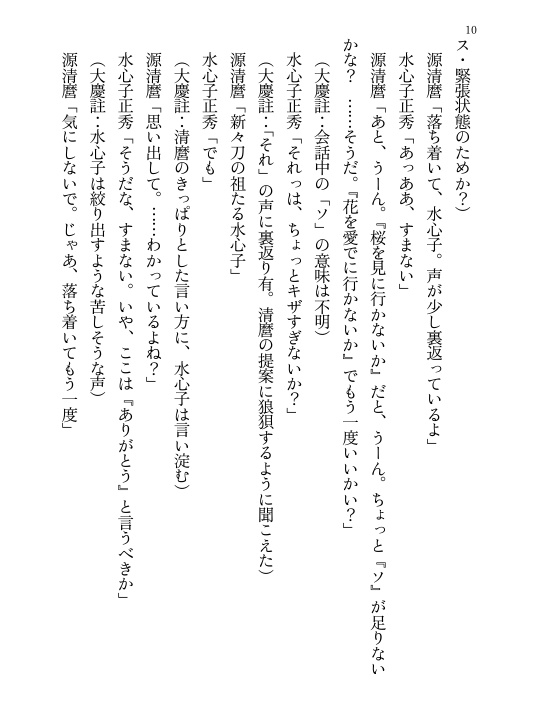 10
ス・緊張状態のためか？）
源清麿「落ち着いて、水心子。声が少し裏返っているよ」
水心子正秀「あっああ、すまない」
源清麿「あと、うーん。『桜を見に行かないか』だと、うーん。ちょっと『ソ』が足りない
かな？　……そうだ。『花を愛でに行かないか』でもう一度いいかい？」
（大慶註：会話中の「ソ」の意味は不明）
水心子正秀「それっは、ちょっとキザすぎないか？」
（大慶註：「それ」の声に裏返り有。清麿の提案に狼狽するように聞こえた）
源清麿「新々刀の祖たる水心子」
水心子正秀「でも」
（大慶註：清麿のきっぱりとした言い方に、水心子は言い淀む）
源清麿「思い出して。……わかっているよね？」
水心子正秀「そうだな、すまない。いや、ここは『ありがとう』と言うべきか」
（大慶註：水心子は絞り出すような苦しそうな声）
源清麿「気にしないで。じゃあ、落ち着いてもう一度」